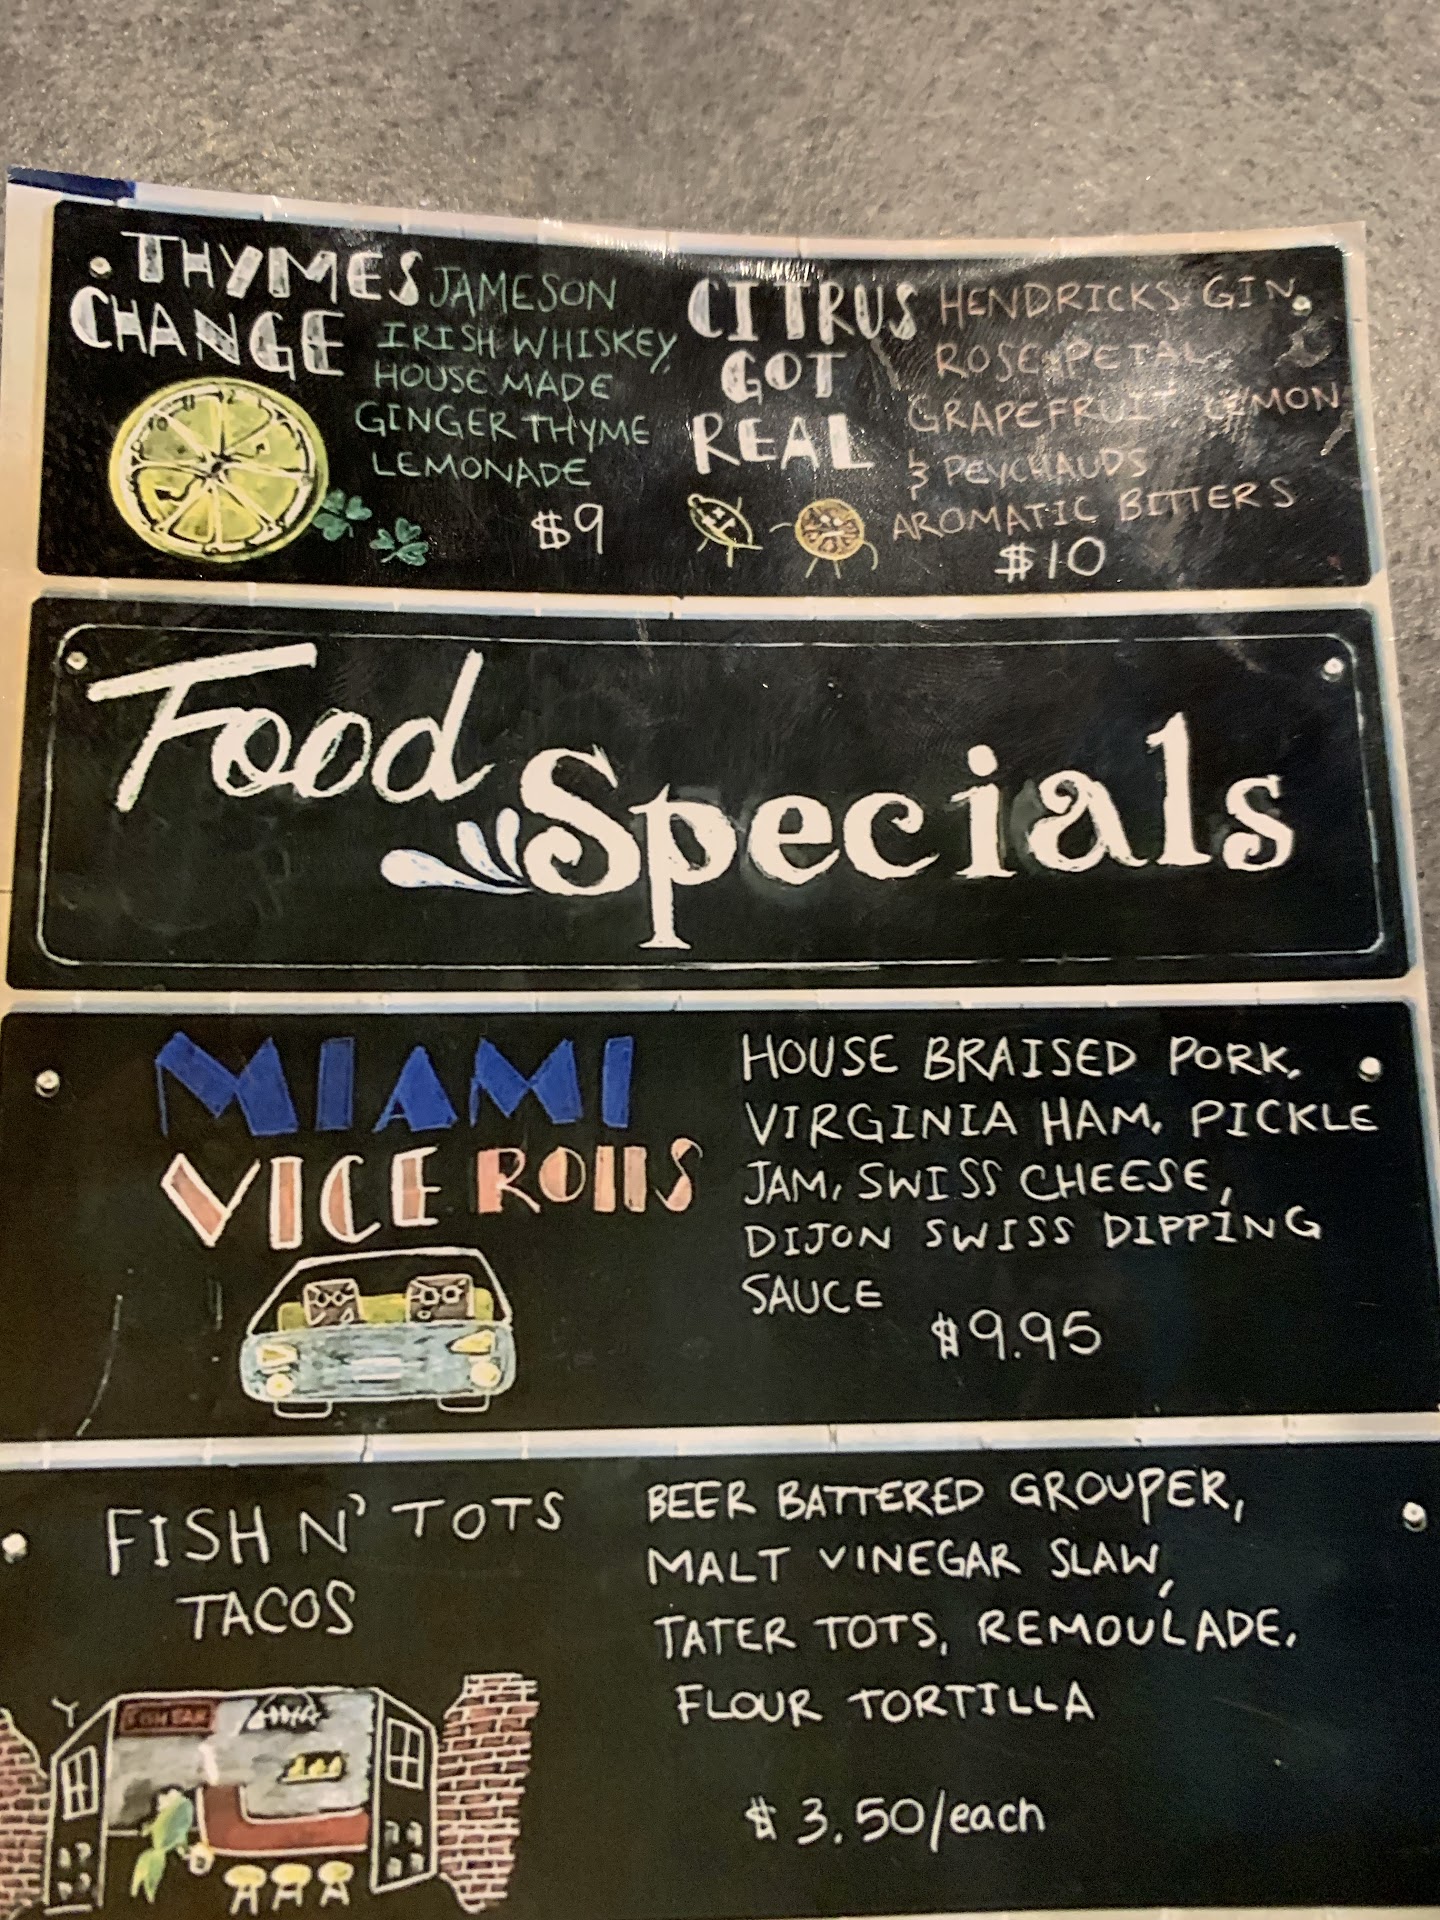 THYMES
CHANGE
JAMESON
IRISH WHISKEY,
HOUSE MADE
GINGER THYME
LEMONADE
$9
CITRUS
GOT
REAL
HENDRICKS GIN
ROSE PETAL
GRAPEFRUIT LEMON
& PEYCHAUDS
AROMATIC BITTERS
$10
Food
Specials
MIAMI
VICE ROllS
HOUSE BRAISED PORK,
VIRGINIA HAM, PICKLE
JAM, SWISS CHEESE,
DIJON SWISS DIPPING
SAUCE
$9.95
FISH N' TOTS
TACOS
BEER BATTERED GROUPER,
MALT VINEGAR SLAW,
TATER TOTS, REMOULADE,
FLOUR TORTILLA
$3.50/each